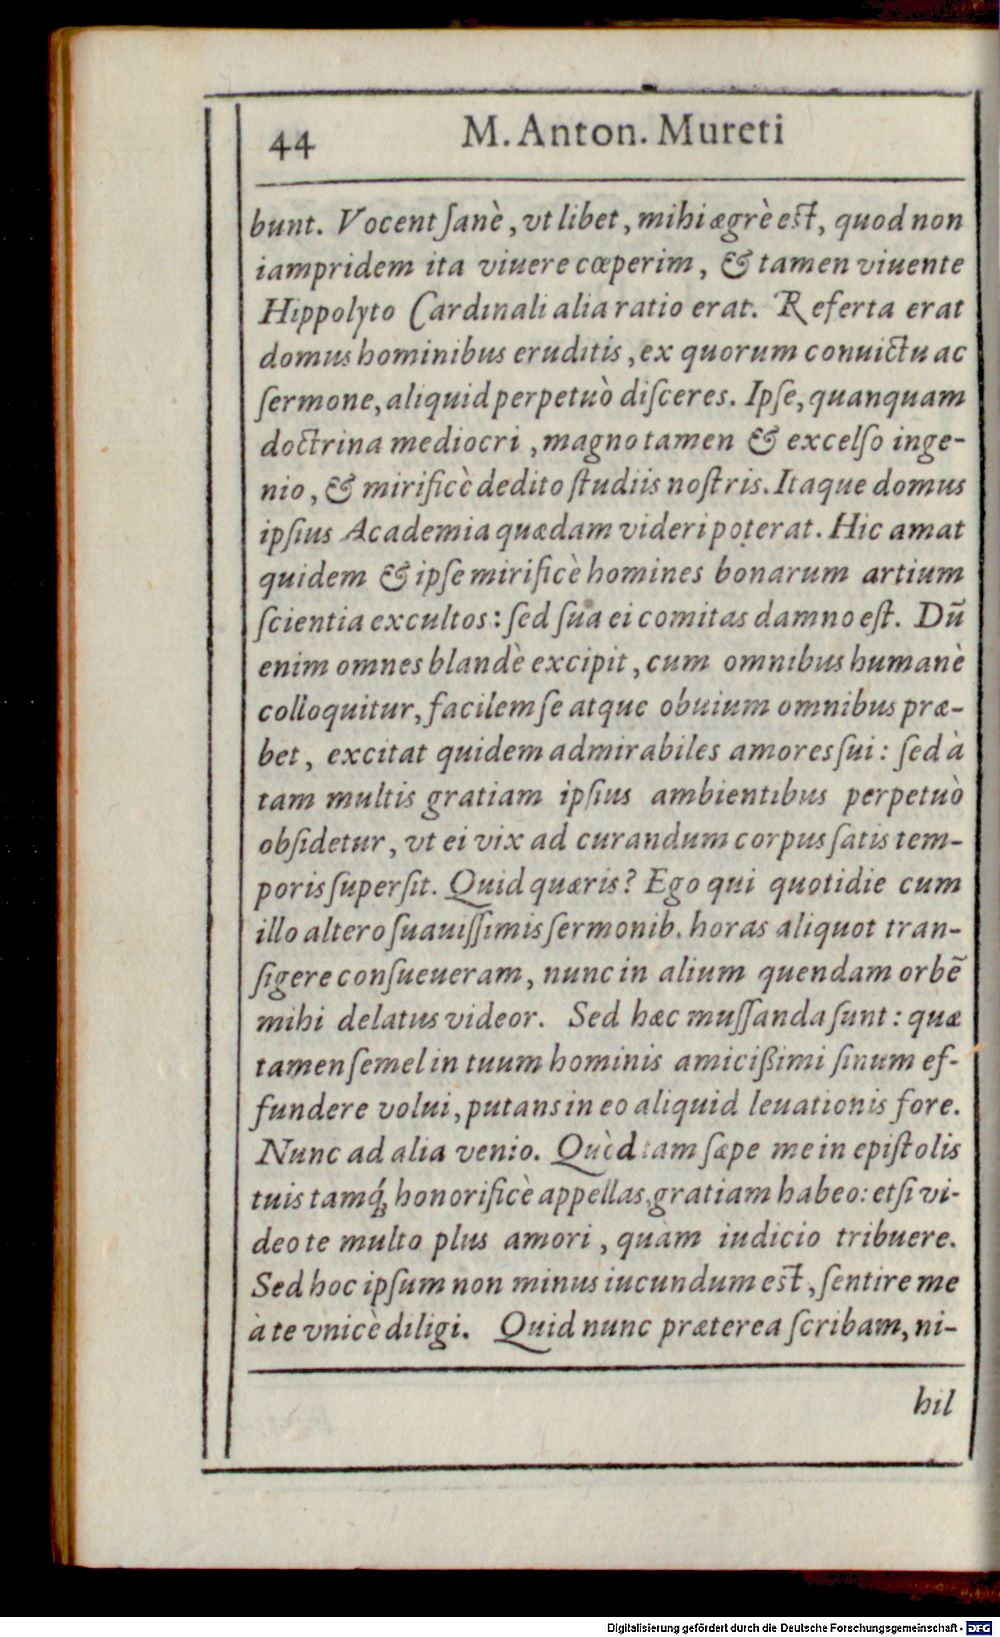 44 M. Anton. Mureti
bunt. Vocent ſanè, vt libet, mihi ægrè est, quod non
iampridem ita viuere cœperim, & tamen viuente
Hippolyto Cardinali alia ratio erat. Referta erat
domus hominibus eruditis, ex quorum conuictu ac
ſermone, aliquid perpetuò diſceres. Ipſe, quanquam
doctrina mediocri, magno tamen & excelſo inge-
nio, & mirificè dedito ſtudiis noſtris. Itaque domus
ipſius Academia quædam videri poterat. Hic amat
quidem & ipſe mirificè homines bonarum artium
ſcientia excultos: ſed ſua ei comitas damno eſt. Dũ
enim omnes blandè excipit, cum omnibus humanè
colloquitur, facilem ſe atque obuium omnibus præ-
bet, excitat quidem admirabiles amores ſui: ſed à
tam multis gratiam ipſius ambientibus perpetuò
obſidetur, vt ei vix ad curandum corpus ſatis tem-
poris ſuperſit. Quid quæris? Ego qui quotidie cum
illo altero ſuauiſſimis ſermonib. horas aliquot tran-
ſigere conſueueram, nunc in alium quendam orbẽ
mihi delatus videor. Sed hæc muſſanda ſunt: quæ
tamen ſemel in tuum hominis amicißimi ſinum ef-
fundere volui, putans in eo aliquid leuationis fore.
Nunc ad alia venio. Quòd tam ſæpe me in epiſtolis
tuis tamq́; honorificè appellas, gratiam habeo: etſi vi-
deo te multo plus amori, quàm iudicio tribuere.
Sed hoc ipſum non minus iucundum est, ſentire me
à te vnicè diligi. Quid nunc præterea ſcribam, ni-
hil
Digitalisierung gefördert durch die Deutsche Forschungsgemeinschaft - DFG